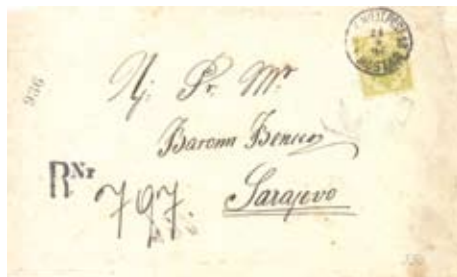 936
Nj. Pr. Mr
Baronu Benku
Sarajevo
RNr
797.